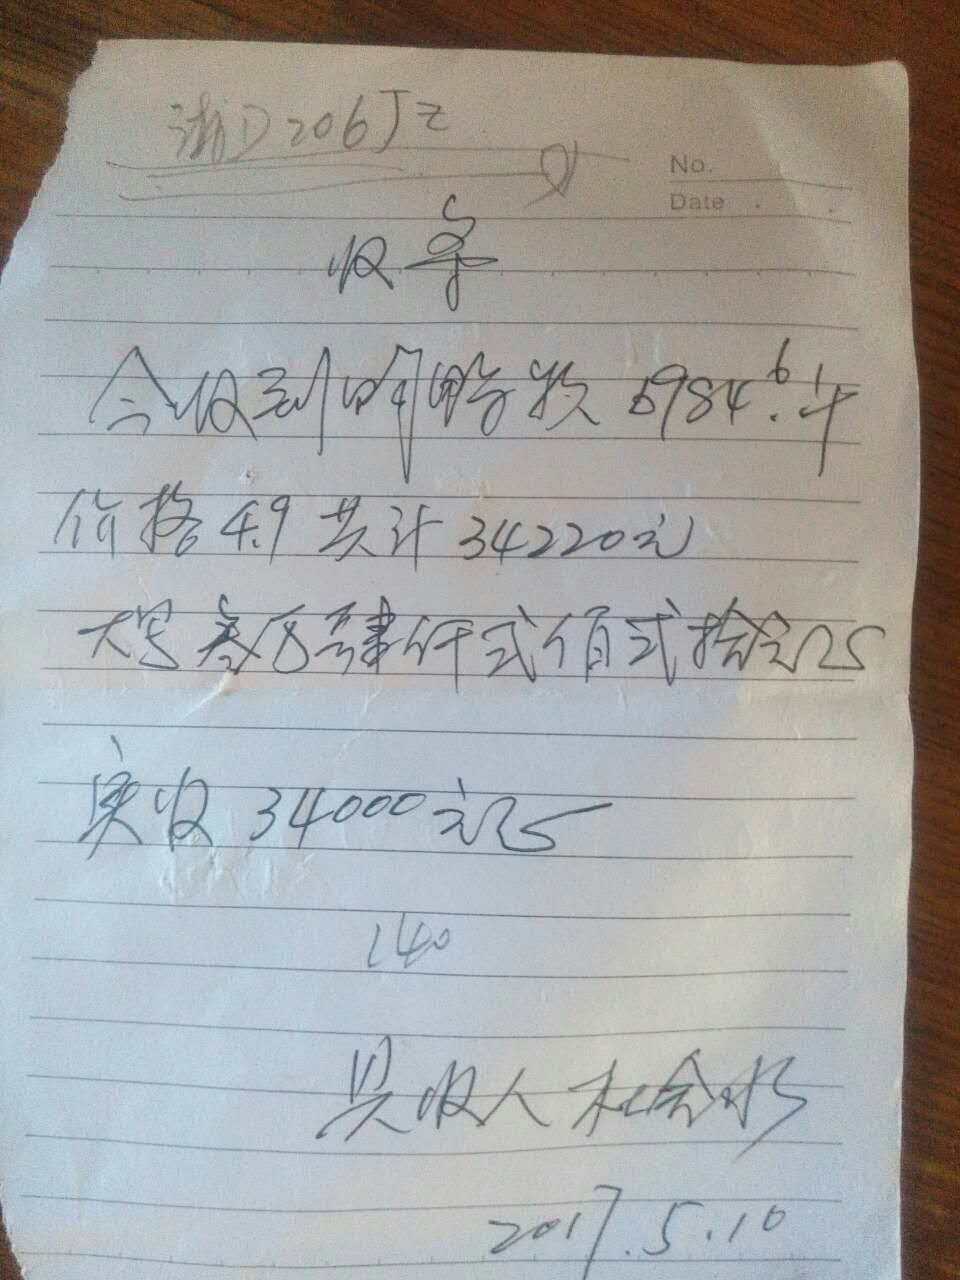 浙D206JZ
No.
Date
收条
今收到 6984.6斤
价格4.9共计34220元
大写叁万肆仟贰佰贰拾元
实收34000元
140
收人
2017.5.10